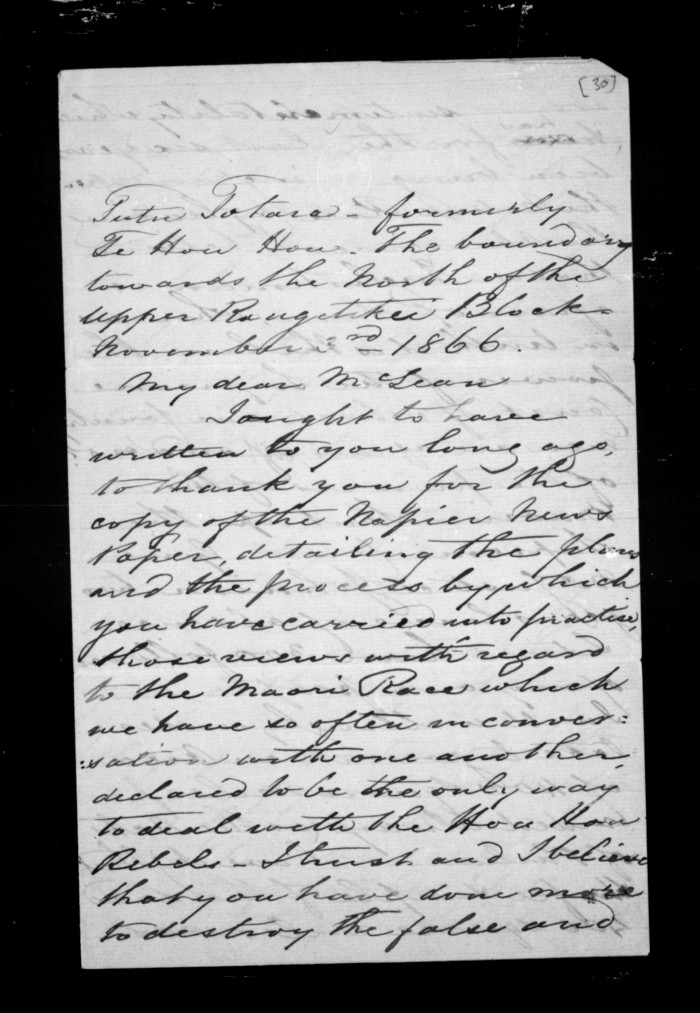 [30]
Putu Totara - formerly
Te Hou Hou. The boundary
towards the North of the
upper Rangitikei Block -
November 3rd 1866.
My dear McLean
I ought to have
written to you long ago,
to thank you for the
copy of the Napier News
Paper, detailing the plans
and the process by which
you have carried into practise,
those views with regard
to the Maori Race which
we have so often in conver:
:sation with one another,
declared to be the only way
to deal with the Hou Hou
Rebels - I trust and I believe
that you have done more
to destroy the false and